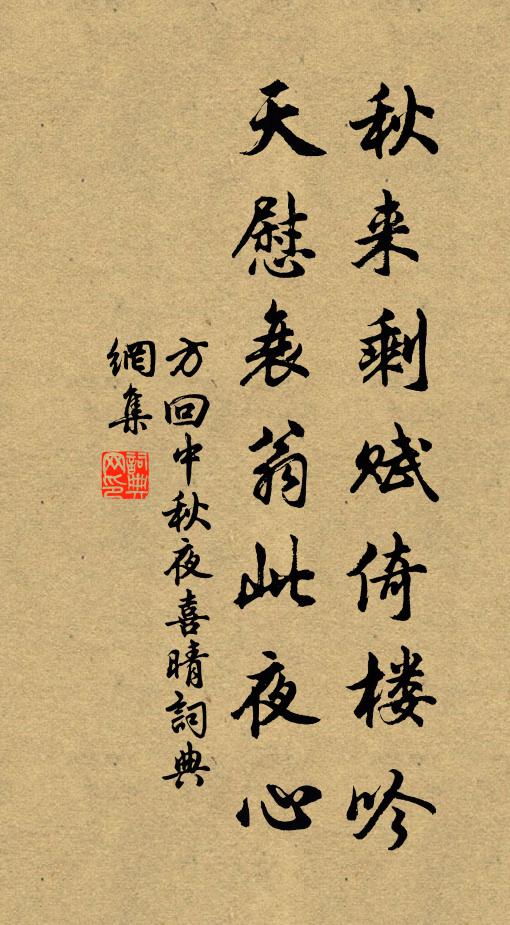 秋来剩赋倚楼吟
天慰衰翁此夜心
方回中秋夜喜晴詞典
網集
詞典
网印